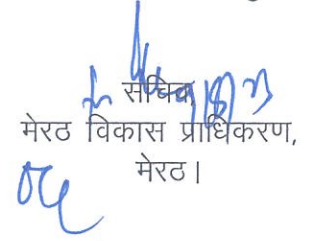 सचिव
मेरठ विकास प्राधिकरण,
मेरठ।